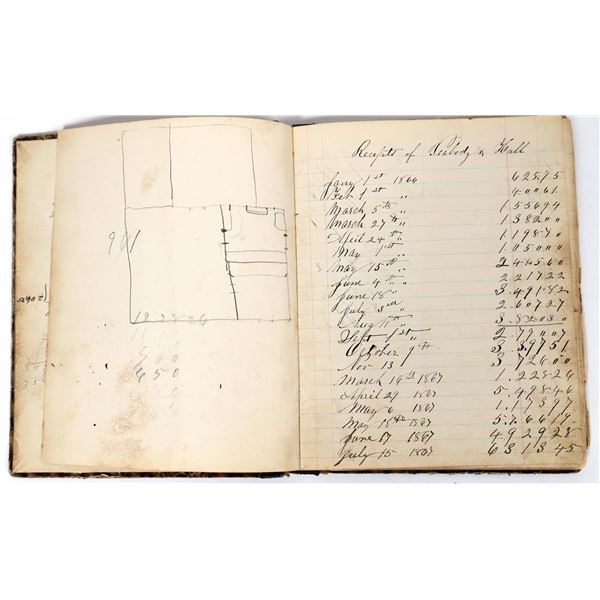 961
197826
650
Receipts of Peabody & Hall
Jany 1st 1866 62575
Feb 1st " 40061
March 5th " 155694
March 27th " 1382""
April 24th " 11987"
May 1st " 105000
May 15th " 241560
June 4th " 221722
June 18 " 349182
July 3rd " 260727
Aug 11th " 38203"
Sept 1st " 279007
October 9th " 339751
Nov 13 " 372600
March 19th 1867 122826
April 29 1867 549846
May 6 1867 117397
May 18th 1867
June 17 1867 492928
July 15 1867 631345